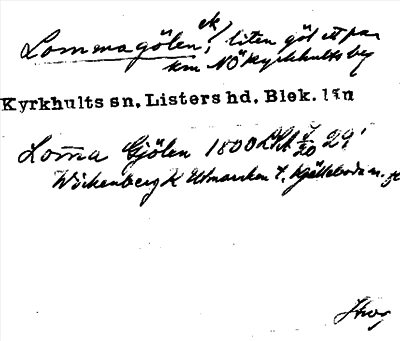 Lommagölen, ek, liten göl ett par
km NÖ Kyrkhults by
Kyrkhults sn. Listers hd. Blek. län
Lom̄a Gjölen 1800 29
Wickenberg K Utmarken t. Kjätteboda n.